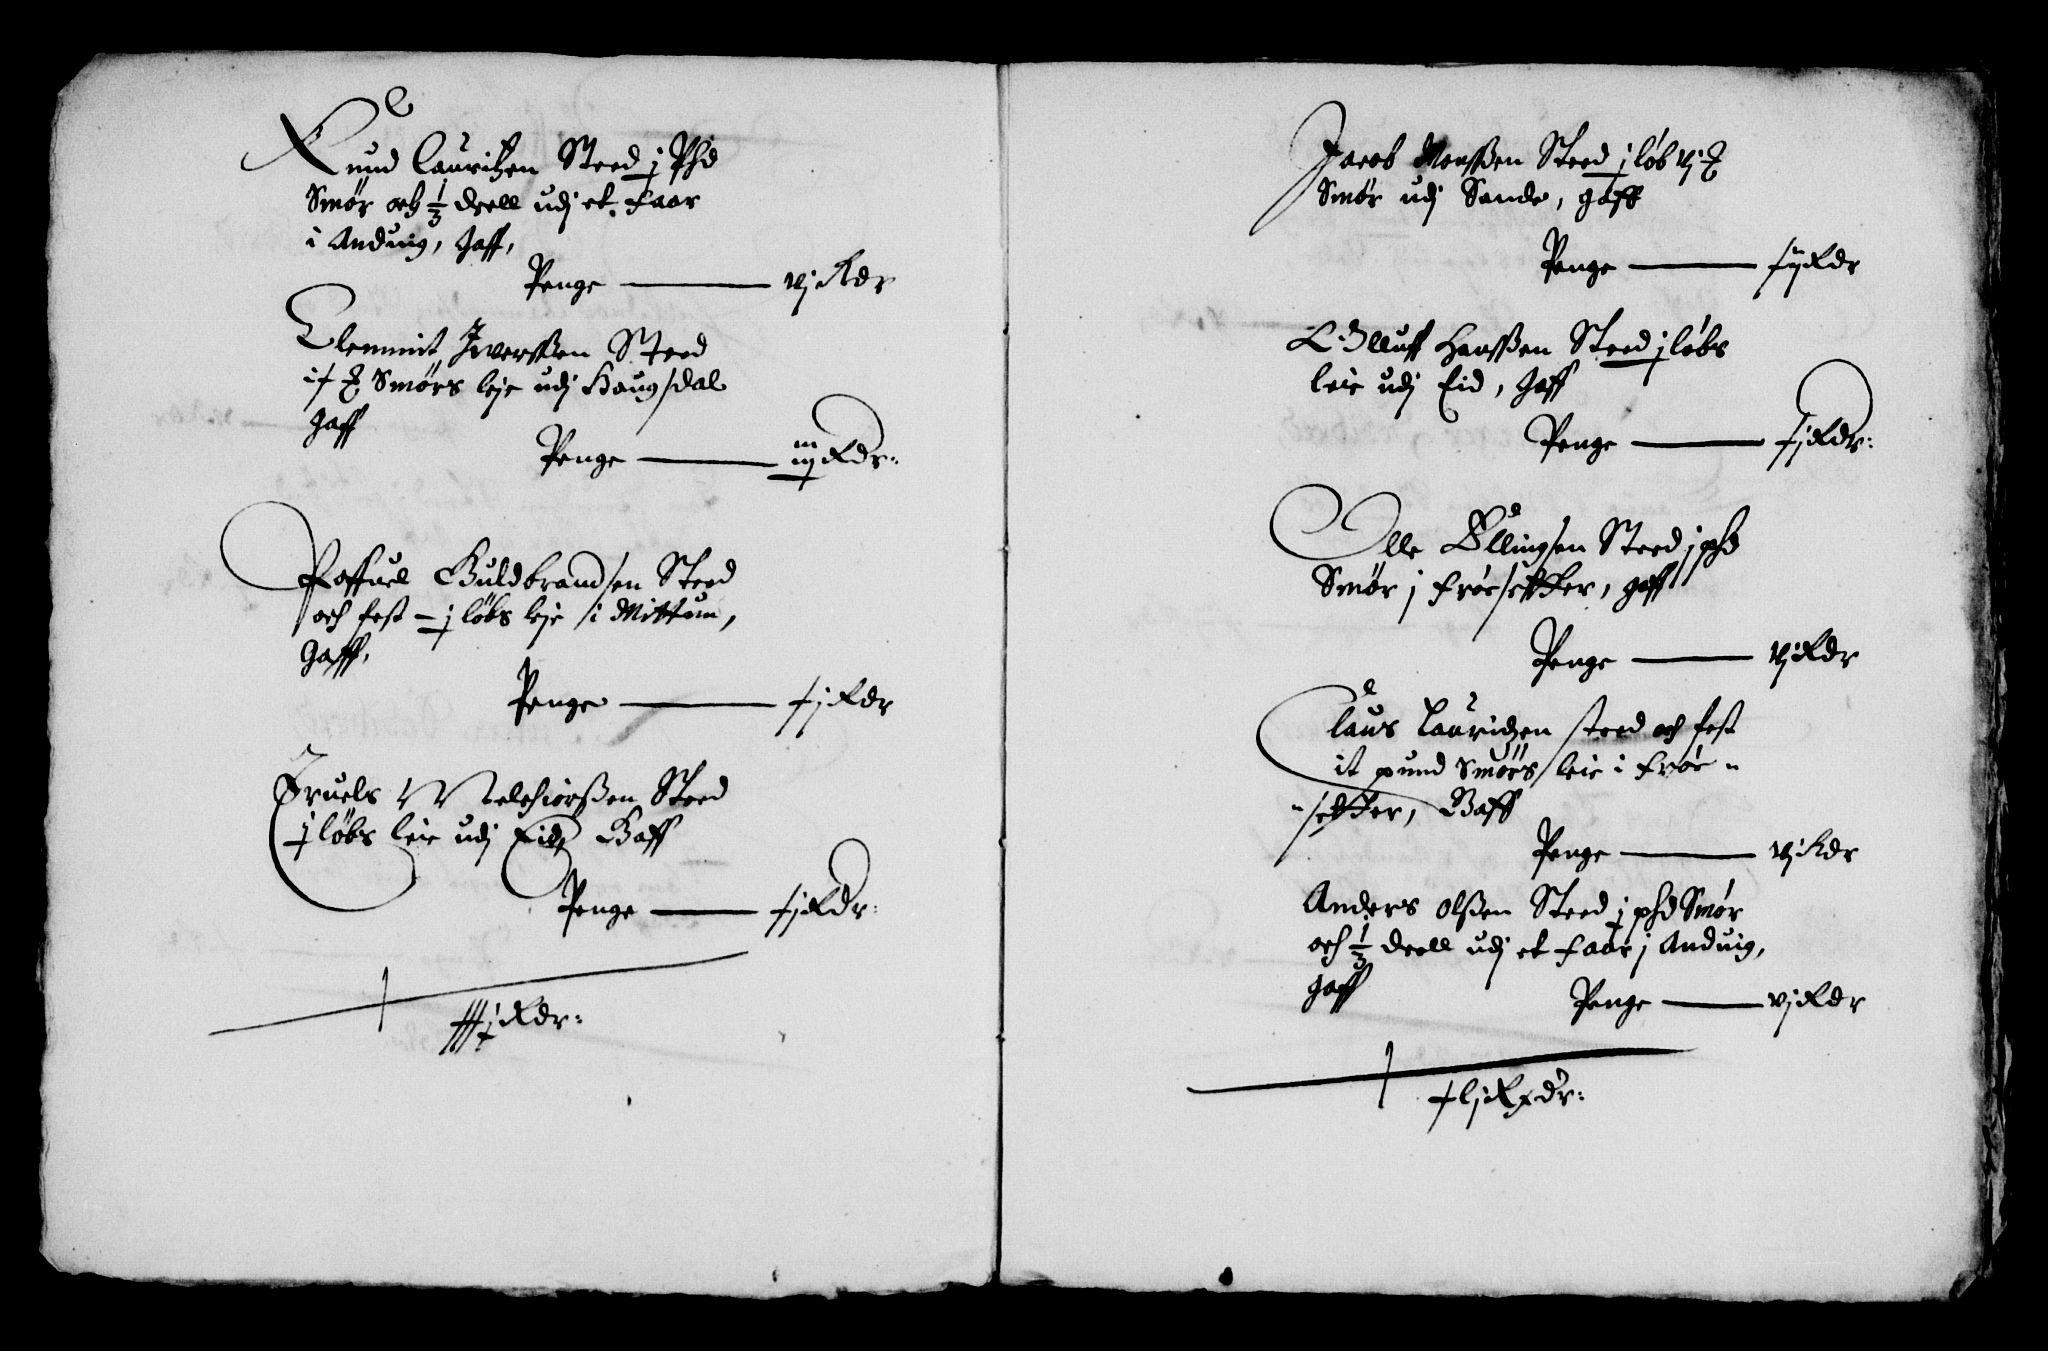 Knud Lauritzen Steed j Phd
Smør och ⅓ deell udj et faar
i Anduig, Gaff,
Penge — vj Rdr
Clemmit Iversßen Steed
Smørs leje udj Haugsdal
Gaff
Penge — Rdr:
Poffuel Guldbrandsen Steed
och fest j løbs leje i Mittun,
Gafff,
Penge — xj Rdr
Truels Melchiorßen Steed
j løbs leie udj Eid, Gaff
Penge — xj Rdr:
xxxj Rdr:
Jacob Monßen Steed j løb vj
Smør udj Sande, gaff
Penge — Rdr
Olluff Hanßen Steed j løbs
leie udj Eid, Gaff
Penge — xj Rdr:
Olle Ellingsen Steed j phd
Smør j Frøesetter, gaff
Penge — vj Rdr
Claus Lauridzen steed och fest
it pund Smørs leie i Frøe =
= setter, Gaff
Penge — vj Rdr
Anders Olßen Steed j phd Smør
och ⅓ deell udj et faar j Anduig,
Gaff
Penge — vj Rdr
xlj Rdr: